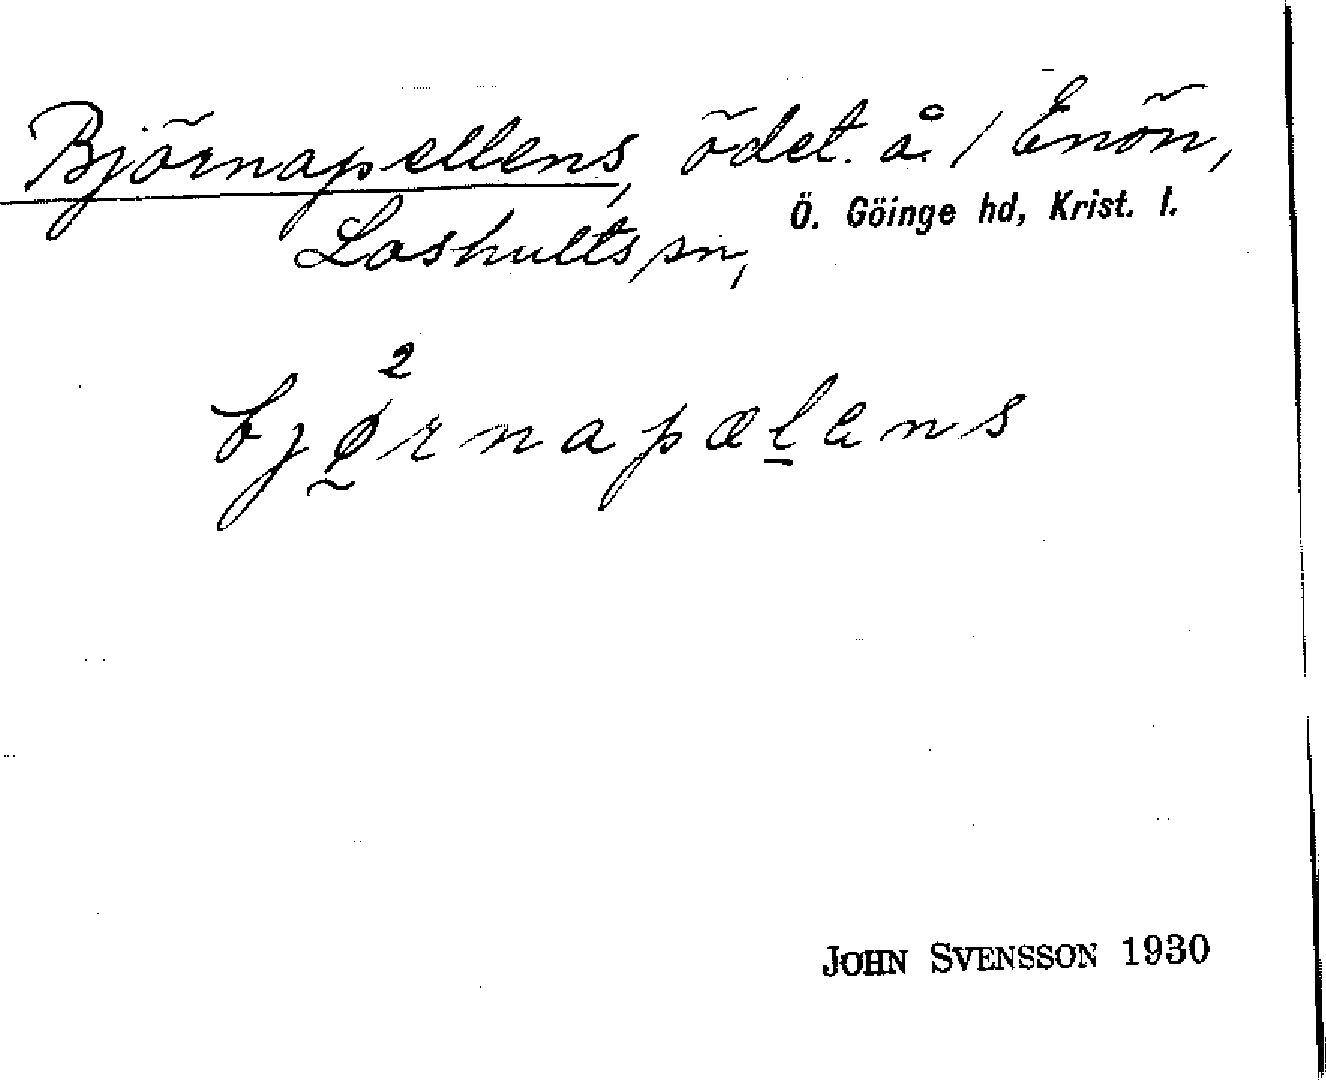 Björnapellens, ödet. å /Enön,
Loshults sn, Ö. Göinge hd, Krist. l.
2
bjørnapælans
JOHN SVENSSON 1930